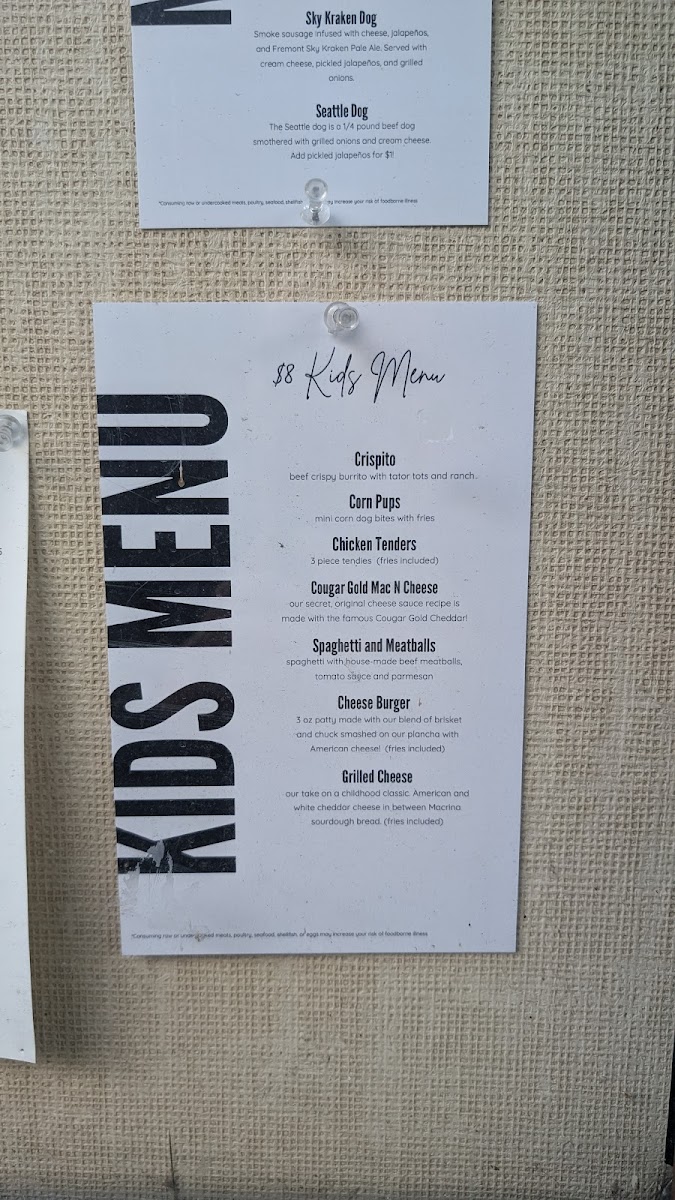 Sky Kraken Dog
Smoke sausage infused with cheese, jalapeños,
and Fremont Sky Kraken Pale Ale. Served with
cream cheese, pickled jalapeños, and grilled
onions.
Seattle Dog
The Seattle dog is a 1/4 pound beef dog
smothered with grilled onions and cream cheese.
Add pickled jalapeños for $1!
*Consuming raw or undercooked meats, poultry, seafood, shellfish may increase your risk of foodborne illness
KIDS MENU
$8 Kids Menu
Crispito
beef crispy burrito with tator tots and ranch.
Corn Pups
mini corn dog bites with fries
Chicken Tenders
3 piece tendies (fries included)
Cougar Gold Mac N Cheese
our secret, original cheese sauce recipe is
made with the famous Cougar Gold Cheddar!
Spaghetti and Meatballs
spaghetti with house-made beef meatballs,
tomato sauce and parmesan
Cheese Burger
3 oz patty made with our blend of brisket
and chuck smashed on our plancha with
American cheese! (fries included)
Grilled Cheese
our take on a childhood classic. American and
white cheddar cheese in between Macrina
sourdough bread. (fries included)
*Consuming raw or undercooked meats, poultry, seafood, shellfish, or eggs may increase your risk of foodborne illness